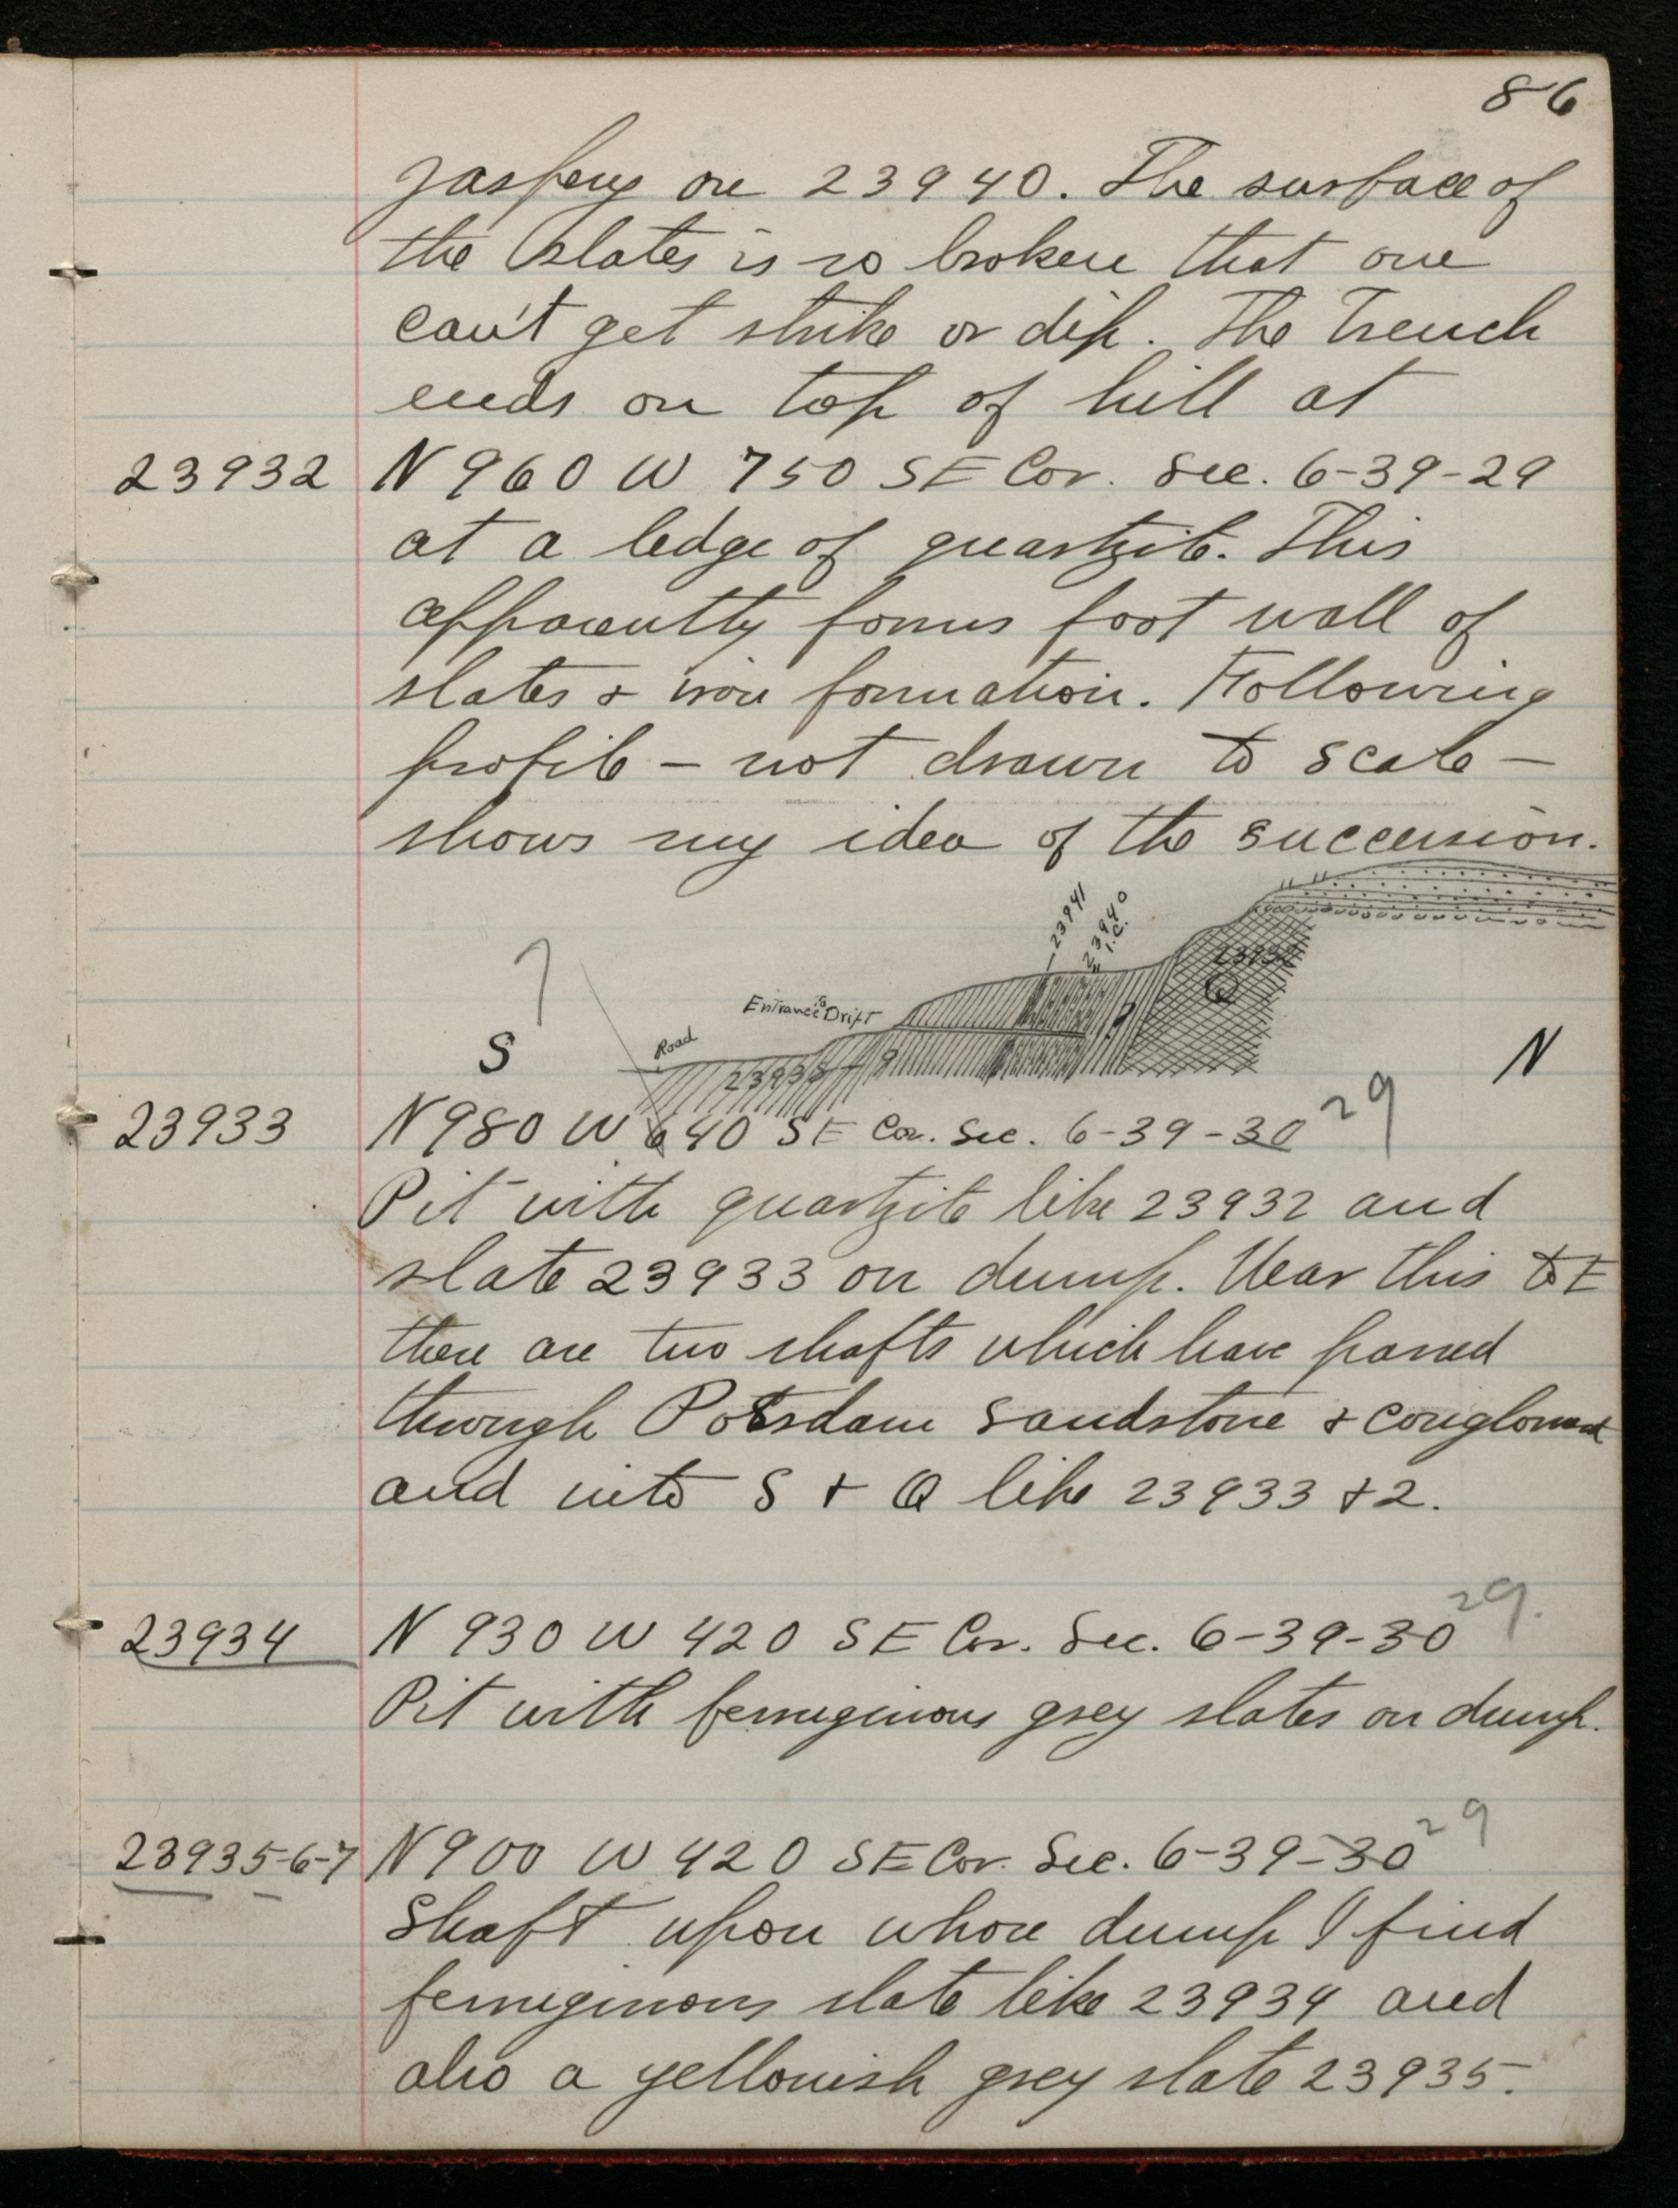 86
Jaspery ore 23940. The surface of
the slates is so broken that one
can't get strike or dip. The trench
ends on top of hill at
23932 N 960 W 750 SE Cor. Sec. 6-39-29
at a ledge of quartzite. This
apparently forms foot wall of
slates & iron formation. Following
profile – not drawn to scale –
shows my idea of the succession.
23941
23940
I.C.
23932
Q
?
Entrance to Drift
Road
S
23938
?
N
23933 N 980 W 640 SE Cor. Sec. 6-39-30 29
Pit with quartzite like 23932 and
slate 23933 on dump. Near this to E
there are two shafts which have passed
through Potsdam sandstone & conglomerat
and into S + Q like 23933 + 2.
23934 N 930 W 420 SE Cor. Sec. 6-39-30 29.
Pit with ferruginous grey slates on dump.
23935-6-7 N 900 W 420 SE Cor. Sec. 6-39-30 29
Shaft upon whose dump I find
ferruginous slate like 23934 and
also a yellowish grey slate 23935.